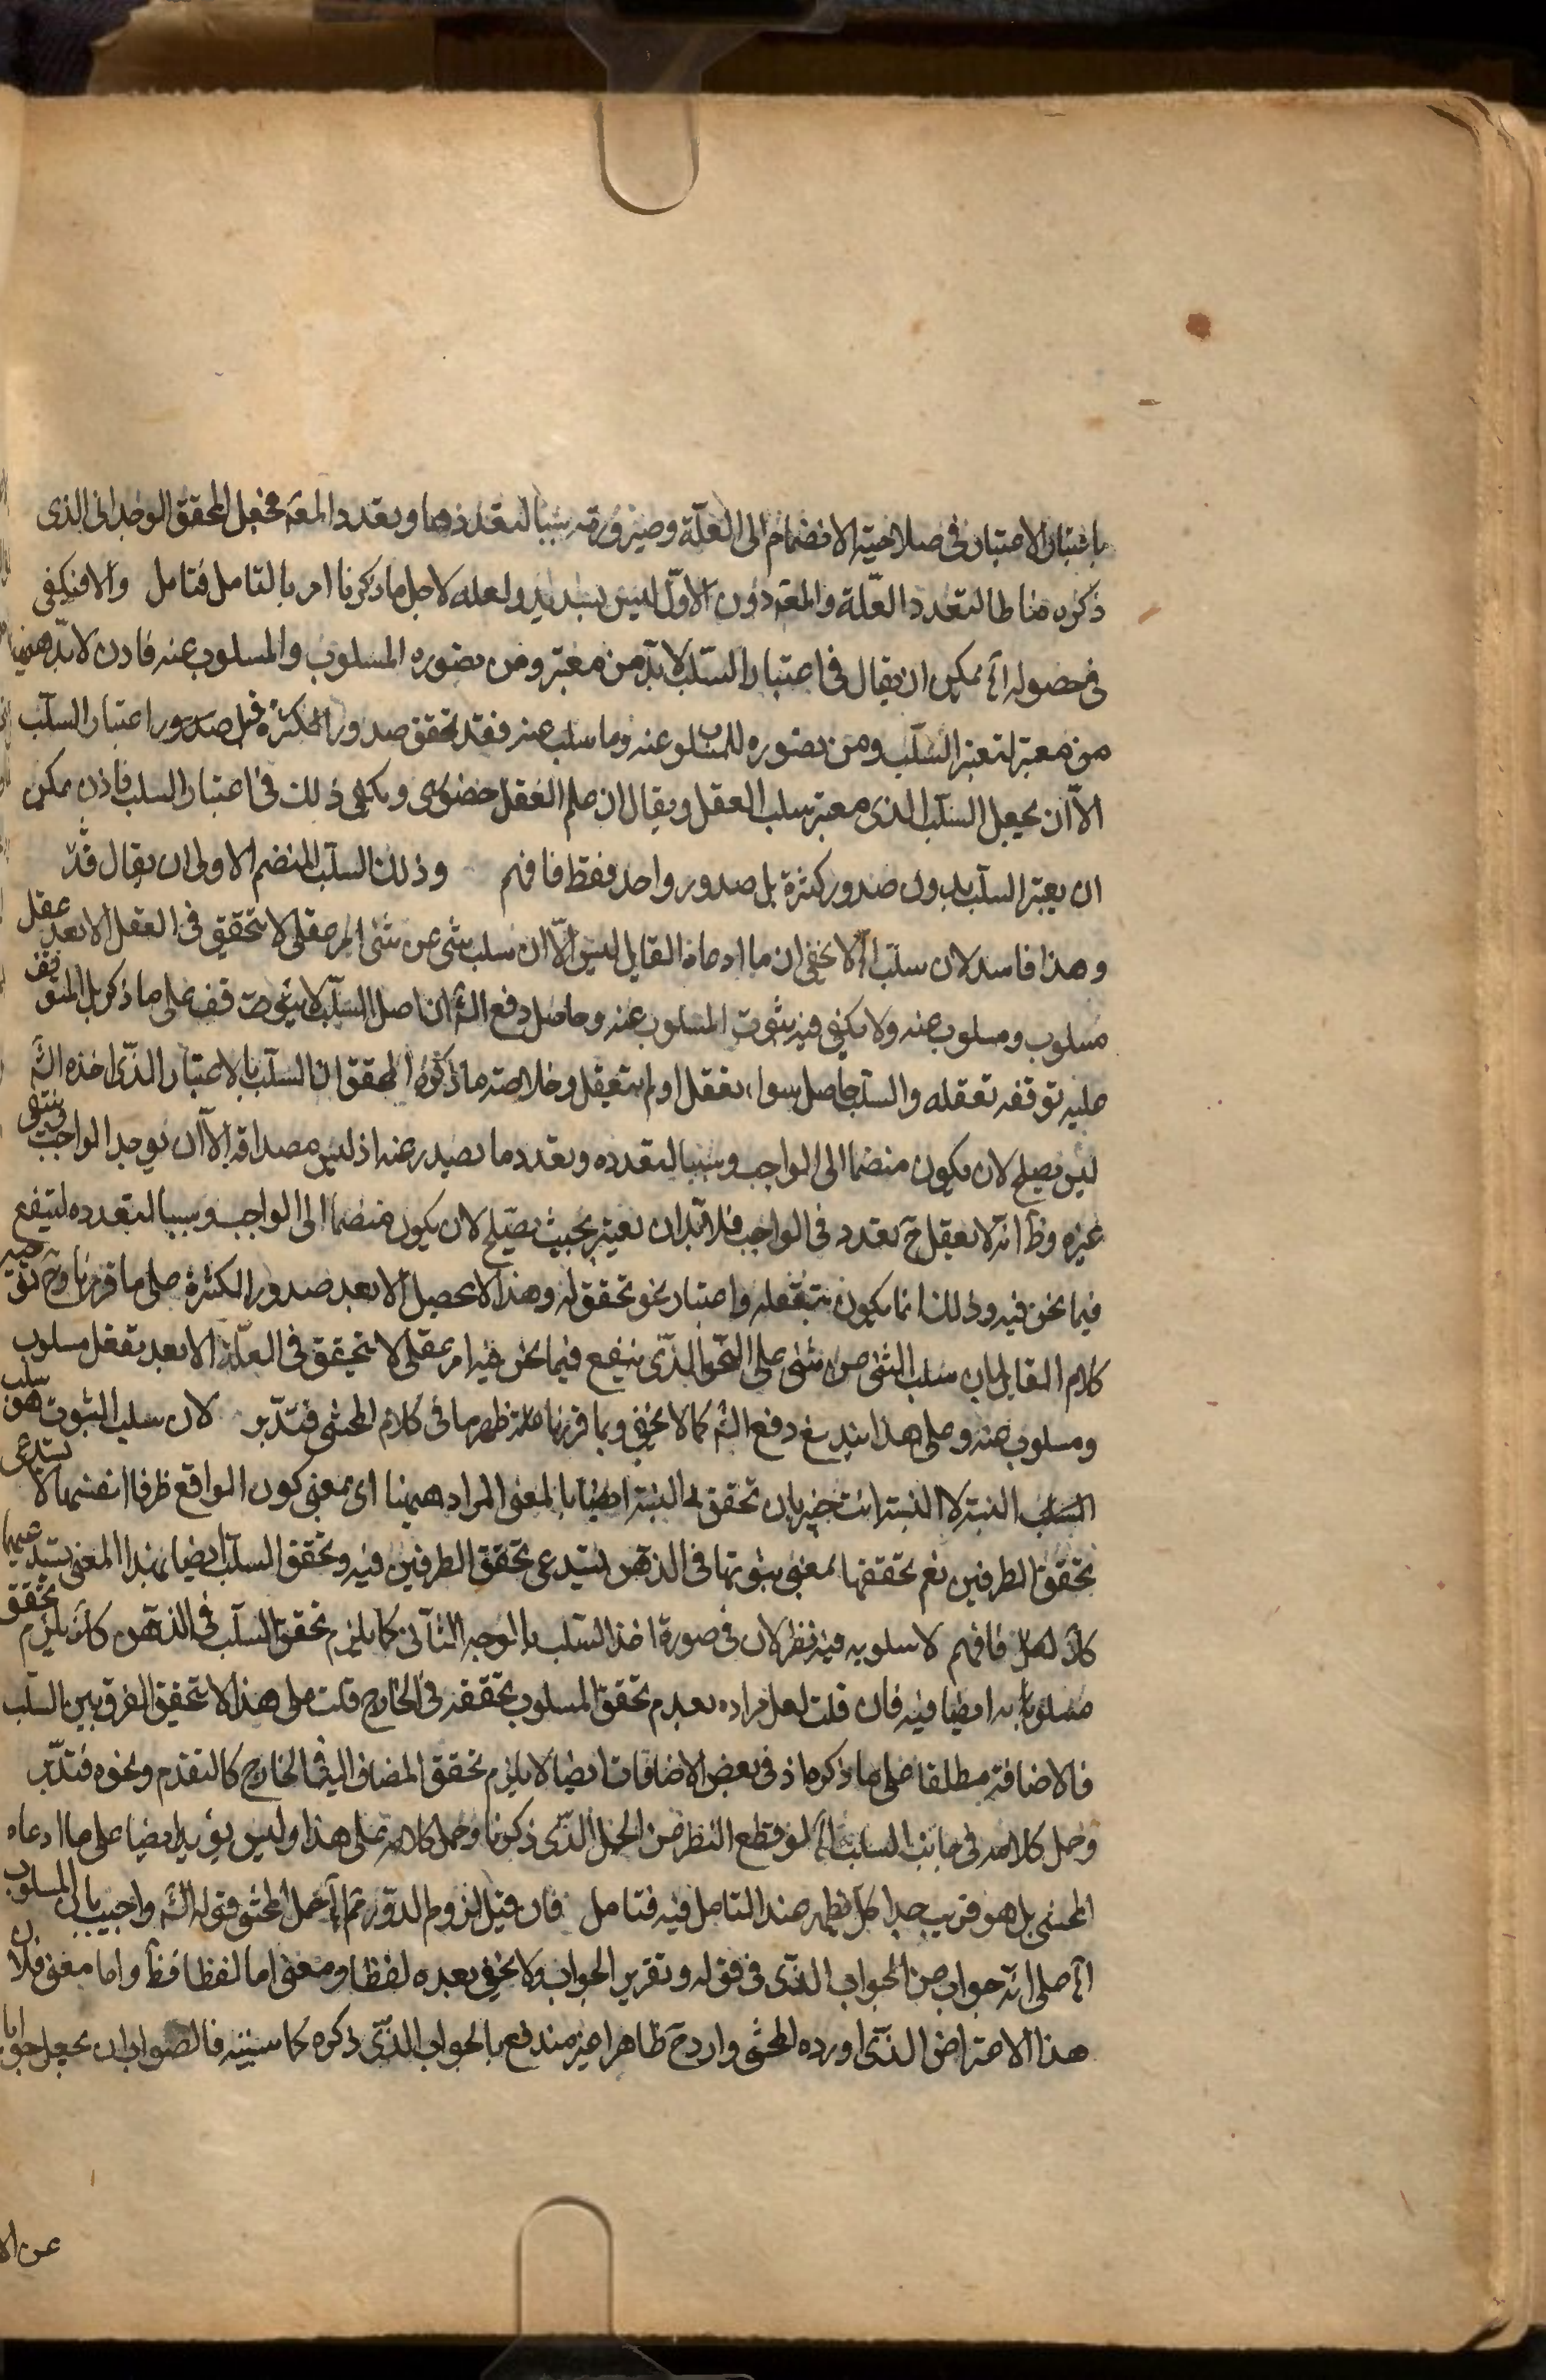 باعتبار الاعتبار فى صلاحية الانضمام الى العلّة وصيرورته سببا لتعددها وتعدد المعه فجعل المحقق الوحدانى الذى
ذكره مناطا لتعدد العلّة والمعه دون الاوّل ليس بسديد ولعله لاجل ما ذكرنا امر بالتامل فتامل والا فيكفى
فى حصوله آه يمكن ان يقال فى اعتبار السّلب لا بدّ من معتبر ومن تصوره المسلوب والمسلوب عنه فاذن لا بدّ ههنا
من معتبر لتعبر السّلب ومن تصوره للمسلوب عنه وما سلب عنه فقد تحقق صدور الكثرة قبل صدور اعتبار السلب
الاّ ان يجعل السّلب الذى معتبر سلب العقل ويقال ان علم العقل حضورى ويكفى ذلك فى اعتبار السلب فاذن يمكن
ان يعتبر السلب بدون صدور كثرة بل صدور واحد فقط فافهم وذلك السلب المنضم الاولى ان يقال قدّ
وهذا فاسد لان سلب آه لا يخفى ان ما ادعاه القايل ليس الاّ ان سلب شى عن شى امر عقلى لا يتحقق فى العقل الا بعد عقل
مسلوب ومسلوب عنه ولا يكفى فيه ثبوت المسلوب عنه وحاصل دفع الشّ ان اصل السّلب لا يتوقف على ما ذكر بل المتوقف
عليه توقفه تعقله والسلب حاصل سواء تعقل او لم يتعقل وخلاصته ما ذكره المحقق ان السلب بالاعتبار الذى اخذه الشّ
ليس يصلح لان يكون منضما الى الواجب وسببا لتعدده وتعدد ما يصدر عنه اذ ليس مصداقه الاّ ان يوجد الواجب وينتفى
غيره وظّ انّه لا يعقل حّ تعدد فى الواجب فلا بدّ ان يعتبر بحيث يصلح لان يكون منضما الى الواجب وسببا لتعدده لينفع
فيما نحن فيه وذلك انما يكون بتعقله واعتبار نحو تحقق له وهذا لا يحصل الا بعد صدور الكثرة على ما قررنا وحّ توجيه
كلام القايل بان سلب الشى عن شى على النحو الذى ينفع فيما نحن فيه امر عقلى لا يتحقق فى العلّة الا بعد تعقل مسلوب
ومسلوب عنه وعلى هذا يندفع دفع الشّ كما لا يخفى وبما قررنا ظهر ما فى كلام المحشى فتدبّر لان سلب الثبوت هو سلب
النسبة لا النسبة انت خبير بان تحقق النسبة ايضا بالمعنى المراد ههنا اى بمعنى كون الواقع ظرفا لنفسها لا يستدعى
تحقق الطرفين نعم تحققها بمعنى ثبوتها فى الذهن يستدعى تحقق الطرفين فيه وتحقق السلب ايضا بهذا المعنى يستدعيهما
فافهم لا سلوبه فيه نظر لان فى صورة اخذ السلب بالوجه الثانى كما يلزم تحقق السلب فى الذهن كذا يلزم تحقق
مسلوبه ايضا فيه فان قلت لعل مراده بعدم تحقق المسلوب تحققه فى الخارج قلت على هذا لا يتحقق الفرق بين السلب
فالاضافة مطلقا على ما ذكره اذ فى بعض الاضافات ايضا لا يلزم تحقق المضاف اليه فى الخارج كالتقدم ونحوه فتدبّر
وحمل كلامه فى جانب السلب آه لو قطع النظر عن الحمل الذى ذكرنا وحمل كلامه على هذا وليس يؤيد ايضا على ما ادعاه
المحشى بل هو قريب جدا كما يظهر عند التامل فيه فتامل فان قيل لزوم الدور ثم آه حمل المحشى قوله الشّ واجيب بان المسلوب
آه على انّه جواب عن الجواب الذى فى قوله وتقرير الجواب ولا يخفى بعده لفظا ومعنى اما لفظا فظّ واما معنى فلان
هذا الاعتراض الذى اورده المحشى وارد حّ ظاهرا غير مندفع بالجواب الذى ذكره كما سنبينه فالصواب ان يجعل جوابا
عن الا